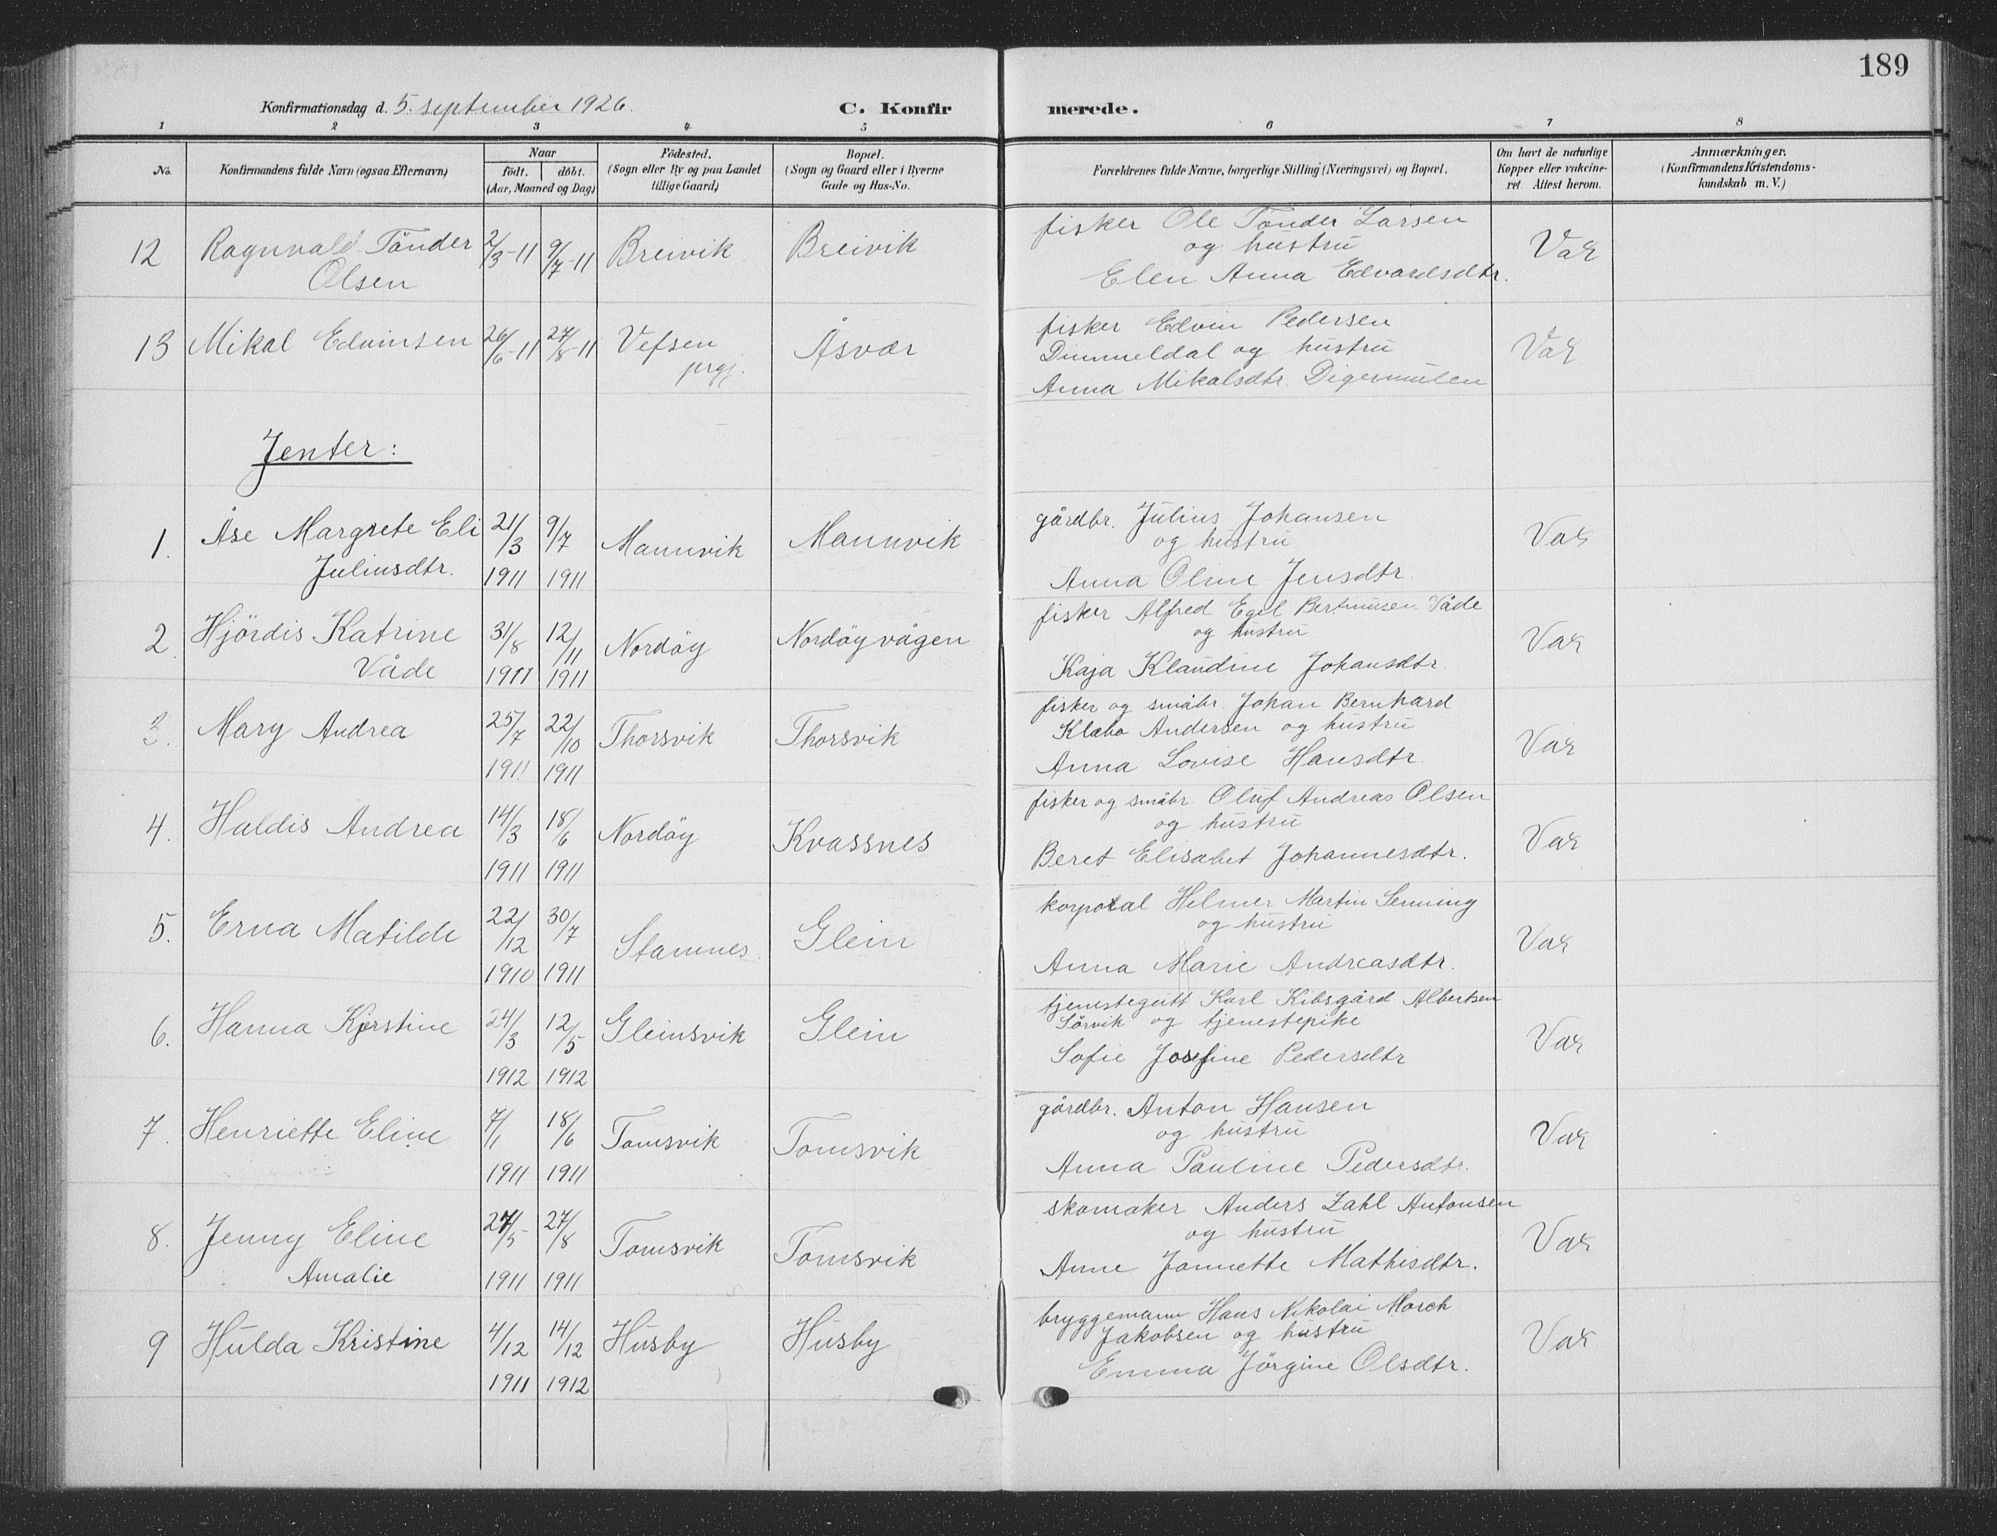 189
Konfirmationsdag d. 5. september 1926.
C. Konfirmerede.
1 2 3 4 5 6 7 8
No.
Konfirmandens fulde Navn (ogsaa Efternavn)
Naar
födt. döbt.
(Aar, Maaned og Dag)
Födested.
(Sogn eller By og paa Landet
tillige Gaard)
Bopæl.
(Sogn og Gaard eller i Byerne
Gade og Hus-No.
Forældrenes fulde Navne, borgerlige Stilling (Næringsvei) og Bopæl.
Om havt de naturlige
Kopper eller vakcine-
ret. Attest herom.
Anmærkninger.
(Konfirmandens Kristendoms-
kundskab m. V.)
12 Ragnvald Tönder 2/3-11 9/7-11 Breivik Breivik
Olsen
fisker Ole Tönder Larsen
og hustru
Elen Anna Edvardsdtr.
Vak
13 Mikal Edvinsen 26/6-11 27/8-11 Vefsen Åsvær
prgj.
fisker Edvin Pedersen
Dimmeldal og hustru
Anna Mikalsdtr. Digermulen
Vak
Jenter:
1. Åse Margrete Eli 21/3 9/7 Mannvik Mannvik
Juliusdtr. 1911 1911
gårdbr. Julius Johansen
og hustru
Anna Oline Jensdtr.
Vak
2. Hjördis Katrine 31/8 12/11 Nordöy Nordöyvågen
Våde 1911 1911
fisker Alfred Egil Bertinusen Våde
og hustru
Kaja Klaudine Johansdtr.
Vak
3. Mary Andrea 25/7 22/10 Thorsvik Thorsvik
1911 1911
fisker og småbr. Johan Bernhard
Klæbo Andersen og hustru
Anna Lovise Hansdtr.
Vak
4. Haldis Andrea 14/3 18/6 Nordöy Kvassnes
1911 1911
fisker og småbr. Oluf Andreas Olsen
og hustru
Beret Elisabet Johannesdtr.
Vak
5. Erna Matilde 22/12 30/7 Stamnes. Glein
1910 1911
korporal Helmer Martin Senning
og hustru
Anna Marie Andreasdtr.
Vak
6. Hanna Kjerstine 24/3 12/5 Gleinsvik Glein
1912 1912
tjenestegutt Karl Kibsgård Albertsen
Sörvik og tjenestepike
Sofie Josefine Pedersdtr
Vak
7. Henriette Eline 7/1 18/6 Tomsvik Tomsvik
1911 1911
gårdbr. Anton Hansen
og hustru
Anna Pauline Pedersdtr.
Vak
8. Jenny Eline 27/5 27/8 Tomsvik Tomsvik
Amalie 1911 1911
skomaker Anders Zahl Antonsen
og hustru
Anne Jannette Mathisdtr.
Vak
9 Hulda Kristine 4/12 14/12 Husby Husby
1911 1912
bryggemann Hans Nikolai Morch
Jakobsen og hustru
Emma Jörgine Olsdtr.
Vak